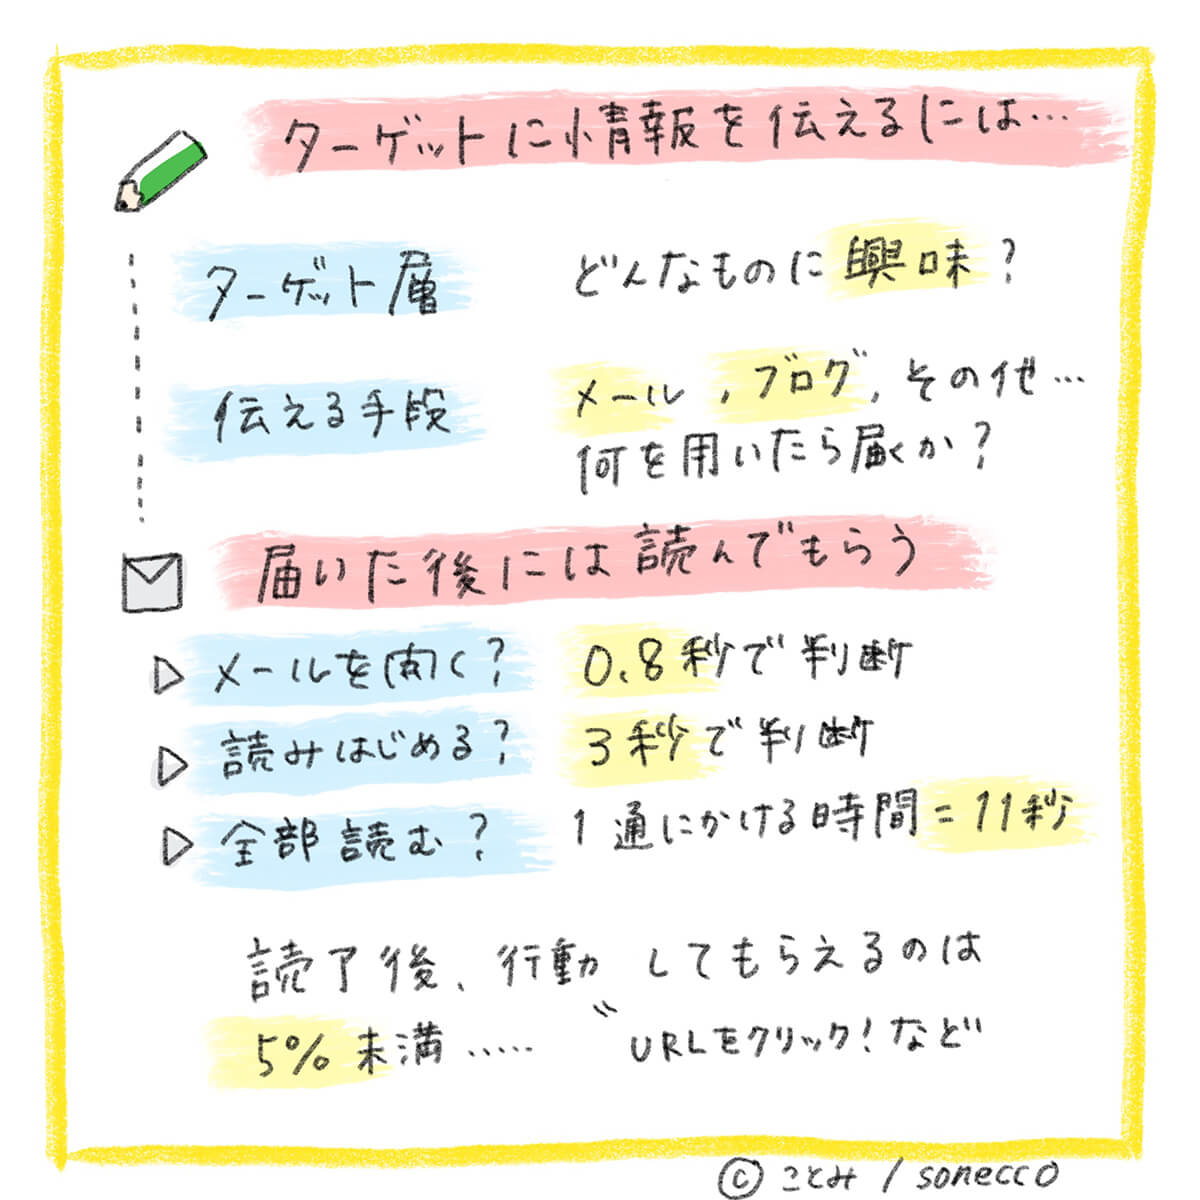 ターゲットに情報を伝えるには…
ターゲット層 どんなものに興味?
伝える手段 メール,ブログ,その他…
何を用いたら届くか?
届いた後には読んでもらう
▷ メールを開く? 0.8秒で判断
▷ 読みはじめる? 3秒で判断
▷ 全部読む? 1通にかける時間=11秒
読了後、行動してもらえるのは
5%未満…… URLをクリック!など
©ことみ / sonecco